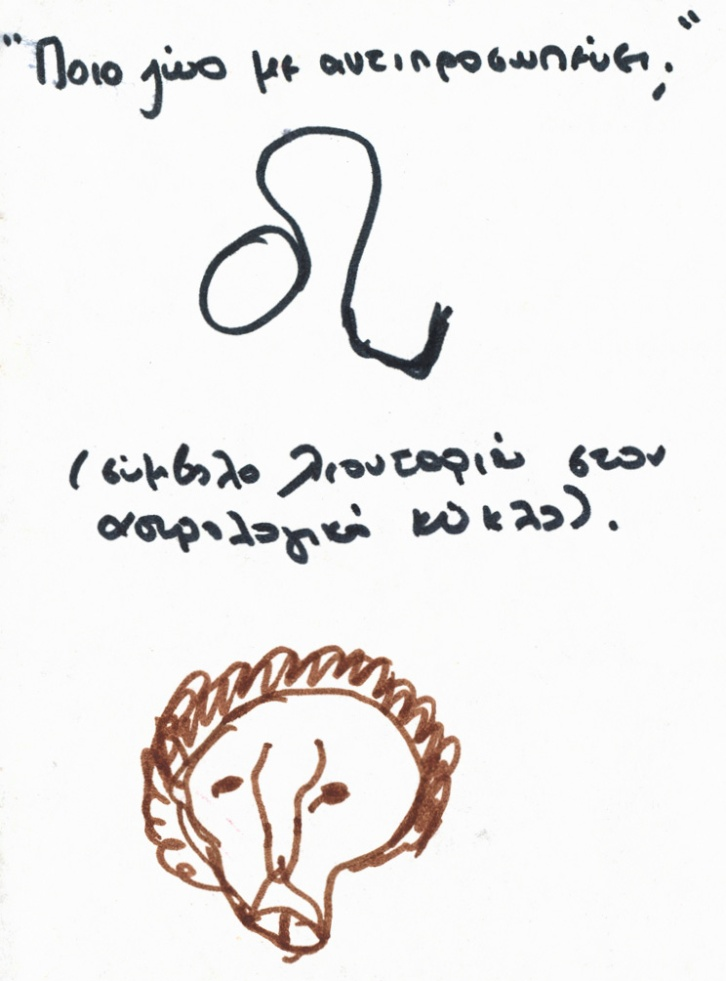 "Ποιο ζώο με αντιπροσωπεύει;"
(σύμβολο λιονταριού στον
αστρολογικό κύκλο).